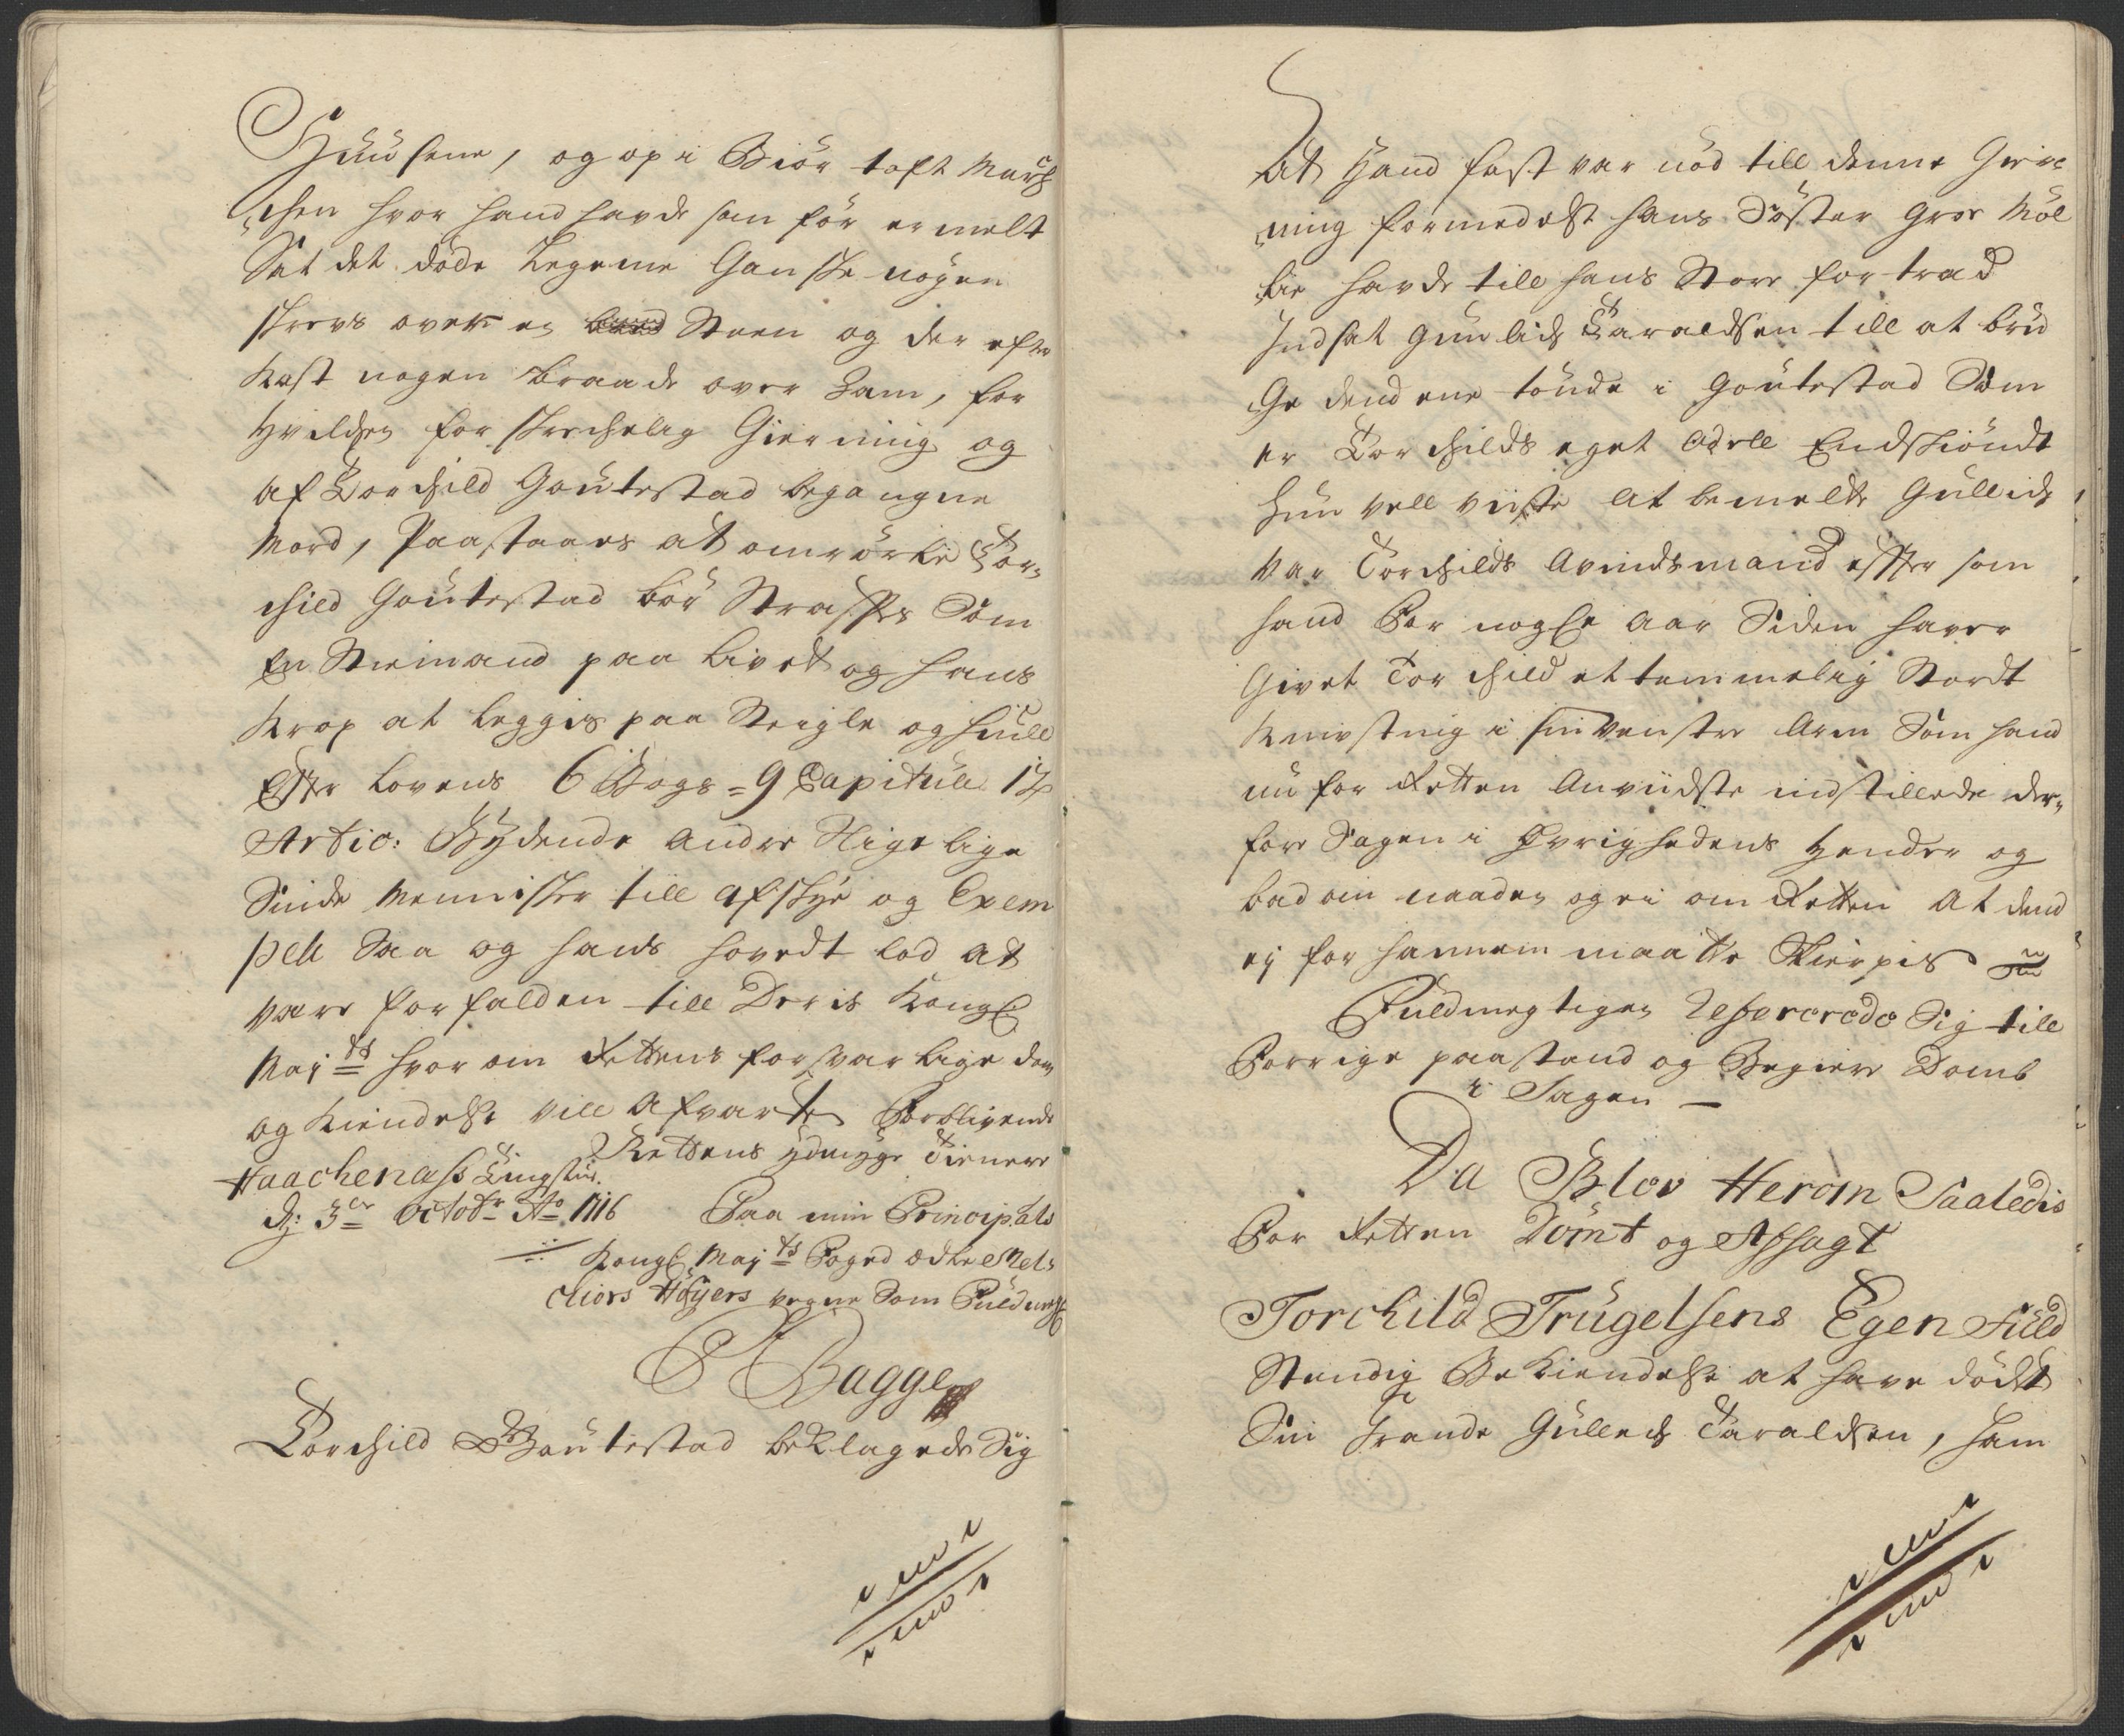 Huusene, og op i Biör toft March
chen hvor hand havde som för er melt
Sat det döde Legeme Ganske nögen
skrevs over en Steen og der efter
kast nogen braade over Ham, for
hvilchen for skrechelig Gierning og
af Torchild Goutestad begangne
Mord, Paastaaes at omrörte Tor¬
child Goutestad bör Straffes Som
En Niemand paa livet og hans
krop at leggis paa Steigle og Hiull
Effter Lovens 6 Bogs = 9 Capitule 12
Artic: Bydende andre Slige lige
Sinde Mennisker till afskye og Exem
pell Saa og hans hovedt lod at
være forfalden till Deris Kongl
May ts hvor om Rettens forsvarlige dom
og Kiendelse vill afvarte Forblivende
Rettens ydmyge Tienere
Haachenass Tingstue.
d: 3 er Octobr Ao 1716 Paa min Principals
Kongl May ts Foged ædle Mel¬
chiors Höyers vegne Som Fuldmegt
Bagge
Torchild Goutestad beklagede Sig
At Hand fast var nöd till denne Gier¬
ning formedelst hans Söster Groe Möl
lie havde till hans Store for trad
Indsat Gunlich Taraldsen till at bru
Ge dend ene tönde i Goutestad Som
er Torchilds eget Odell Endskiöndt
hun vell viiste at bemelte Gullich
var Torchilds Avindsmand effter som
hand For nogle Aar Siden haver
Givet Torchild et temmelig Stordt
knivsting i sin venstre Arm Som hand
nu for Retten Anviidste indstillede der¬
fore Sagen i Øvrighedens Hender og
bad om naade og ei om Retten At dend
ej for hannem maatte Skierpis
Fuldmegtigen Refererede Sig till
Forrige paastand og Begiere Domb
i Sagen
Da Blev Herom Saaledis
For Retten Dömt og Afsagt
Torchild Trugelsens Egen Fuld
Stendig Bekiendelse at have dödt
Sin Grande Gullech Taraldsen, ham